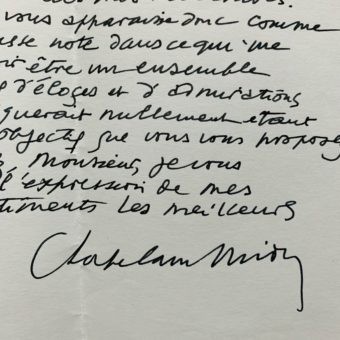 vous apparaisse donc comme
usse note dans ce qui me
oit être un ensemble
d'éloges et d'admirations
querait nullement étant
objectif que vous vous proposez
Monsieur, je vous
l'expression de mes
timents les meilleurs